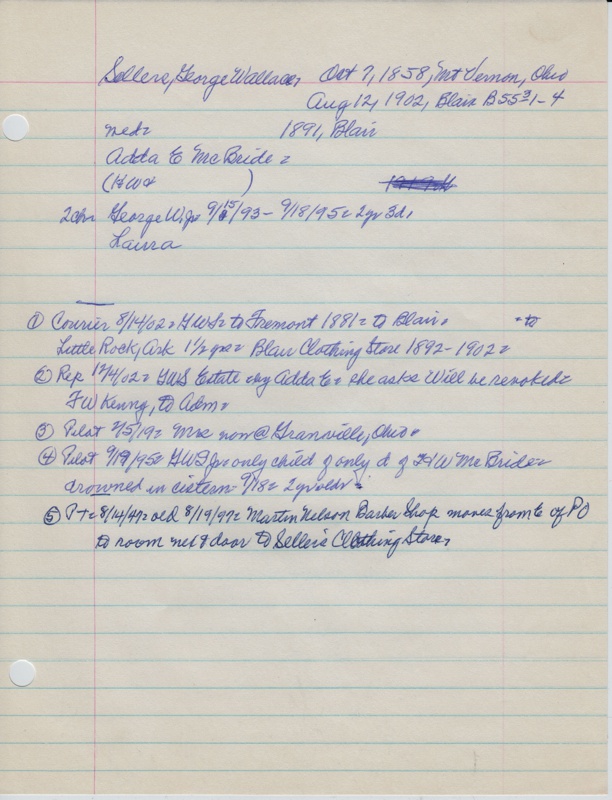 Sellers, George Wallace, Oct 7, 1858, Mt Vernon, Ohio
Aug 12, 1902, Blair B 55 1-4
med= 1891, Blair
Adda E McBride =
(HW )
2chn George W, Jr= 9/15/93 - 9/18/95= 2yr 3d,
Laura
① Courier 8/14/02= GWS= to Fremont 1881= to Blair= to
Little Rock, Ark 1½ yrs= Blair Clothing Store 1892-1902=
② Rep 12/4/02= GWS Estate= by Adda E= she asks Will be revoked=
F W Kenny, to Adm=
③ Pilot 2/5/19= Mrs now @ Granville, Ohio=
④ Pilot 9/19/95= GWS Jr= only child of only d of HW McBride=
drowned in cistern= 9/18= 2yr old=
⑤ PT= 8/14/47= old 8/19/97= Martin Nelson Barber Shop moves from E of PO
to room next door to Sellers Clothing Store,